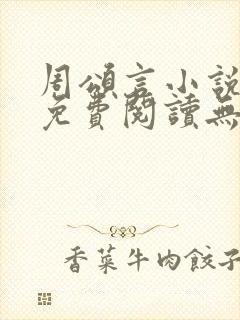 周頌言小說
免費閱讀無
香菜牛肉餃子